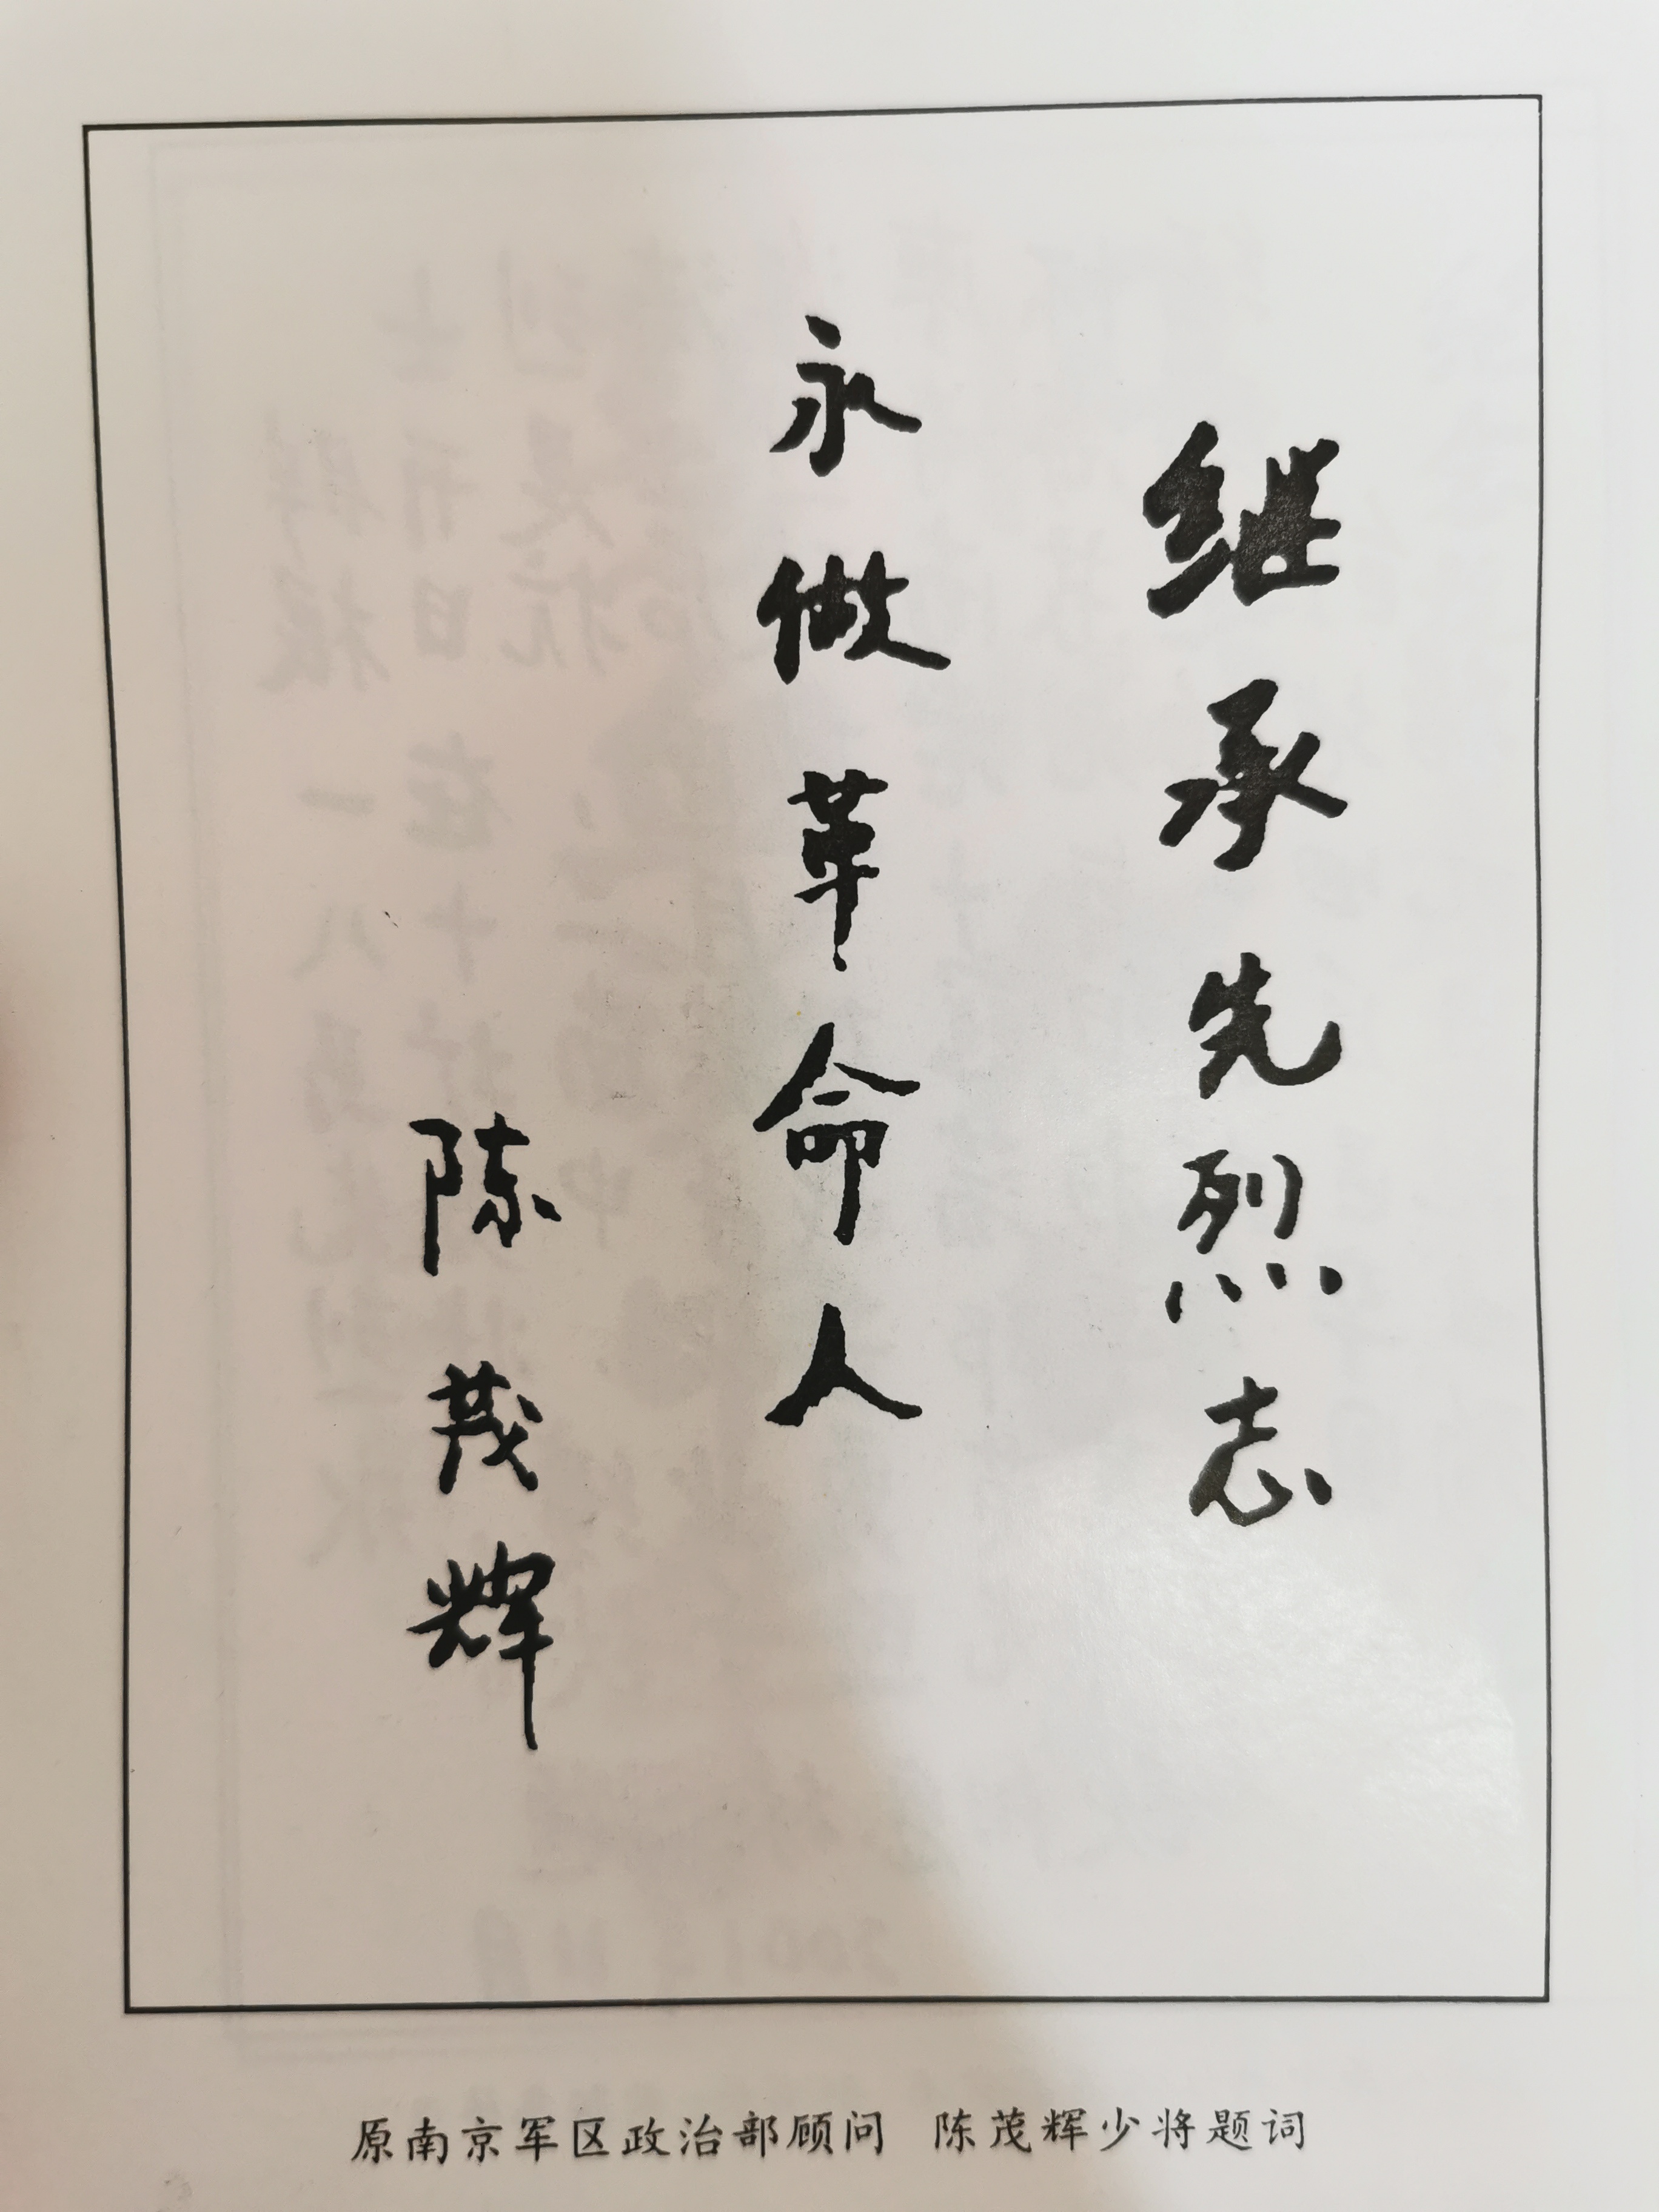 继承先烈志
永做革命人
陈茂辉
原南京军区政治部顾问 陈茂辉少将题词